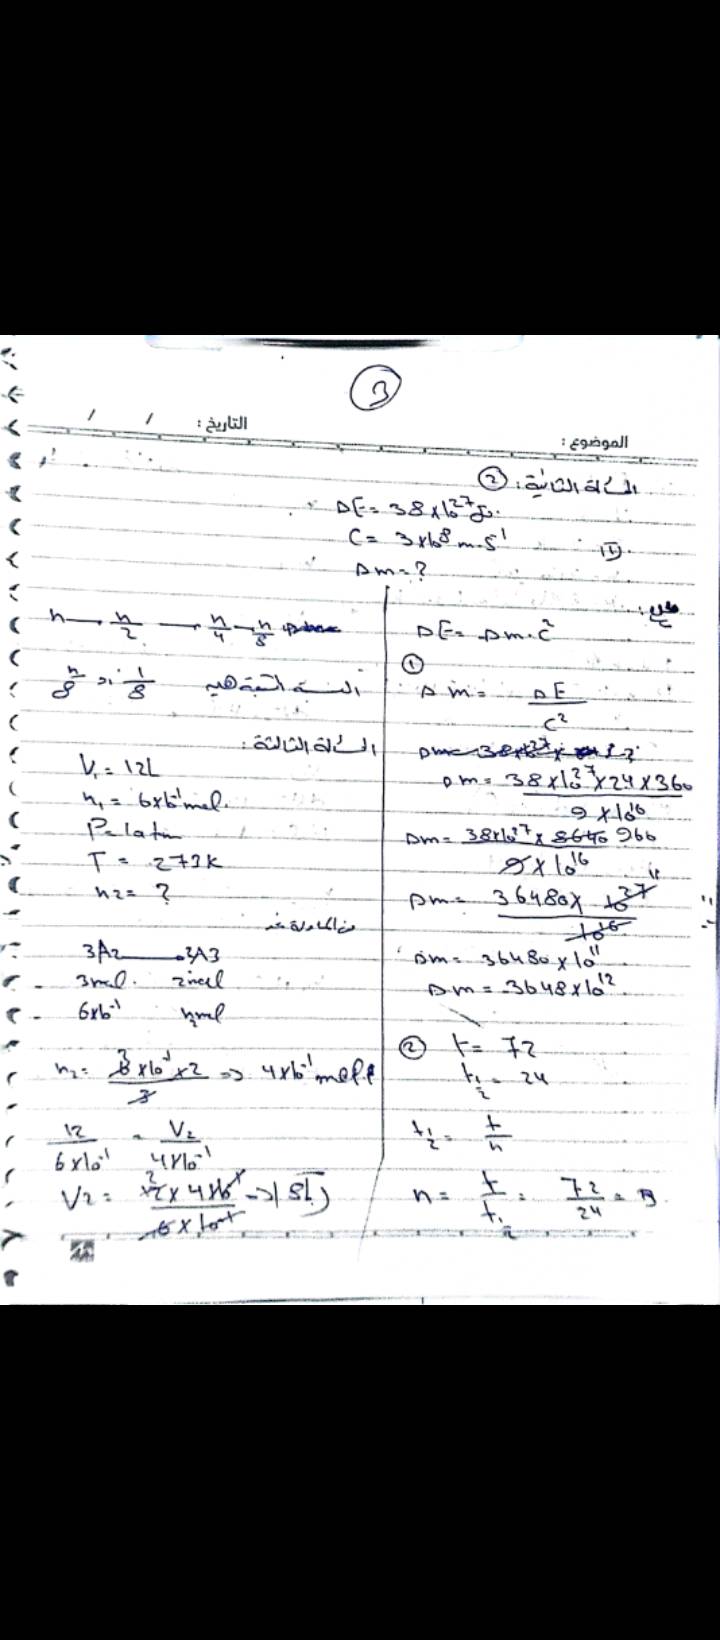 3
الموضوع :
التاريخ : / /
المسألة الثانية: 2
ΔE = 38 x 10^27 J.
C = 3 x 10^8 m.s^-1
Δm = ?
ΔE = Δm . c^2
1
Δm = ΔE / c^2
Δm = 38 x 10^27 x 24 x 360 / 9 x 10^16
Δm = 38 x 10^27 x 8640 960 / 9 x 10^16
Δm = 36480 x 10^27 / 10^16
Δm = 36480 x 10^11
Δm = 3648 x 10^12
2 t = 72
t1/2 = 24
t1/2 = t / n
n = t / t1/2 = 72 / 24 = 3
n → n/2 → n/4 → n/8
n/8 1/8 النسبة المتبقية
المسألة الثالثة:
V1 = 12L
n1 = 6x10^-1 mol.
P = 1atm
T = 273K
n2 = ?
3A2 → 2A3
3mol. 2mol
6x10^-1 n2 mol
n2 = 6 x 10^-1 x 2 / 3 => 4x10^-1 mol
12 / 6x10^-1 = V2 / 4x10^-1
V2 = 12 x 4 x 10^-1 / 6 x 10^-1 => 8L